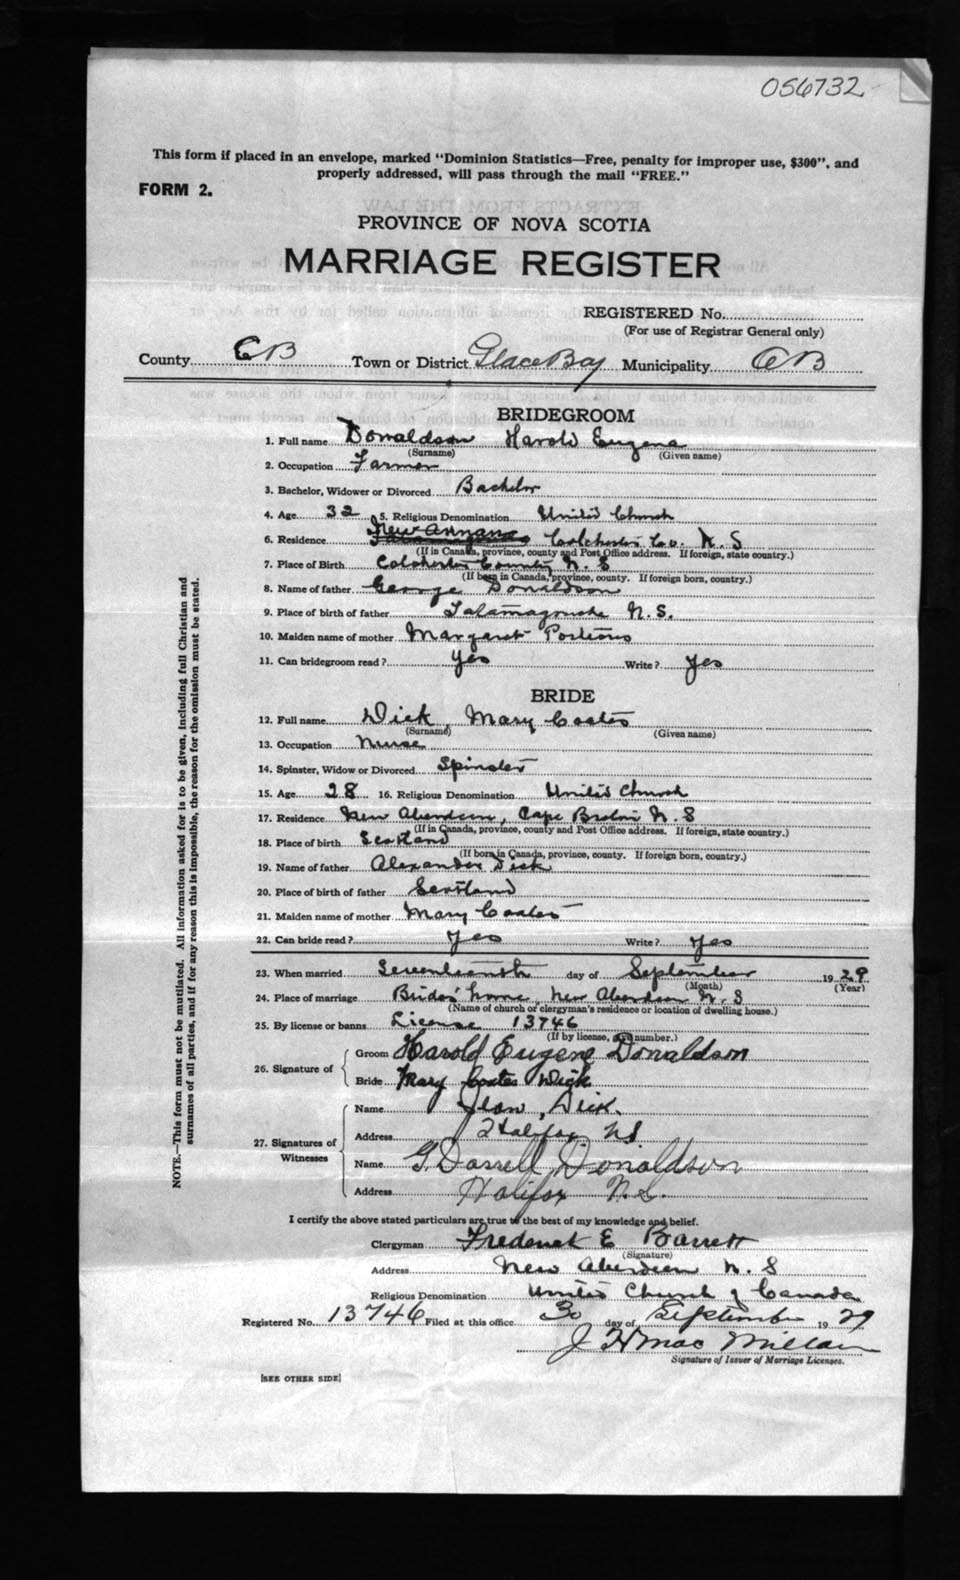 056732
This form if placed in an envelope, marked "Dominion Statistics—Free, penalty for improper use, $300", and
properly addressed, will pass through the mail "FREE."
FORM 2.
PROVINCE OF NOVA SCOTIA
MARRIAGE REGISTER
REGISTERED No.
(For use of Registrar General only)
County CB Town or District Glace Bay Municipality CB
BRIDEGROOM
1. Full name Donaldson Harold Eugene
(Surname) (Given name)
2. Occupation Farmer
3. Bachelor, Widower or Divorced Bachelor
4. Age 32 5. Religious Denomination United Church
New Annan
6. Residence Colchester Co. N. S
(If in Canada, province, county and Post Office address. If foreign, state country.)
7. Place of Birth Colchester County N. S
(If born in Canada, province, county. If foreign born, country.)
8. Name of father George Donaldson
9. Place of birth of father Tatamagouche N.S.
10. Maiden name of mother Margaret Porteous
11. Can bridegroom read? yes Write? yes
BRIDE
12. Full name Dick, Mary Coates
(Surname) (Given name)
13. Occupation Nurse
14. Spinster, Widow or Divorced Spinster
15. Age 28 16. Religious Denomination United Church
17. Residence New Aberdeen, Cape Breton N. S
(If in Canada, province, county and Post Office address. If foreign, state country.)
18. Place of birth Scotland
(If born in Canada, province, county. If foreign born, country.)
19. Name of father Alexander Dick
20. Place of birth of father Scotland
21. Maiden name of mother Mary Coates
22. Can bride read? Yes Write? Yes
23. When married Seventeenth day of September 1929
(Month) (Year)
24. Place of marriage Brides' home, New Aberdeen N. S
(Name of church or clergyman's residence or location of dwelling house.)
25. By license or banns License 13746
(If by license, give number.)
26. Signature of Groom Harold Eugene Donaldson
Bride Mary Coates Dick
27. Signatures of Witnesses
Name Jean Dick.
Address Halifax N.S.
Name G. Darrell Donaldson
Address Halifax N.S.
I certify the above stated particulars are true to the best of my knowledge and belief.
Clergyman Frederick E Barrett
(Signature)
Address New Aberdeen N. S
Religious Denomination United Church of Canada
Registered No. 13746 Filed at this office 30 day of September 1929
J H MacMillan
Signature of Issuer of Marriage Licenses.
[SEE OTHER SIDE]
NOTE.—This form must not be mutilated. All information asked for is to be given, including full Christian and
surnames of all parties, and if for any reason this is impossible, the reason for the omission must be stated.